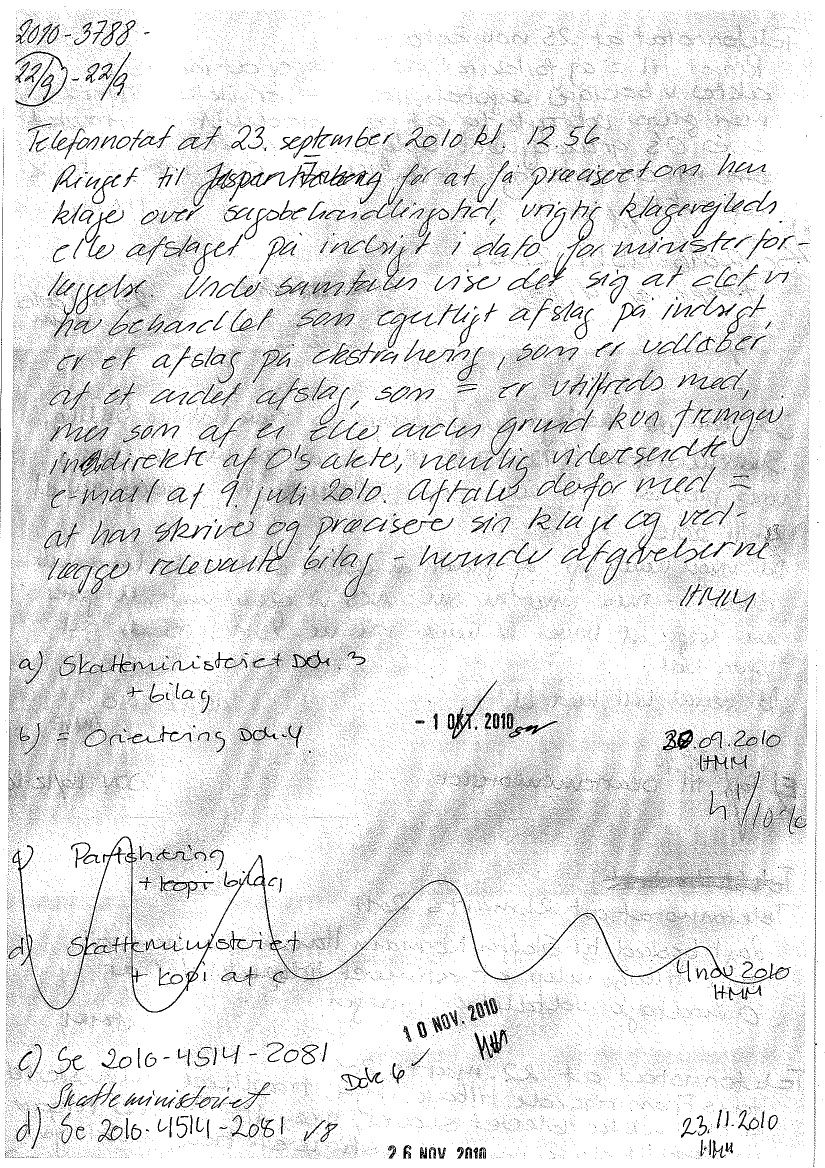 2010-3788-
22/9 - 22/9
Telefonnotat af 23. september 2010 kl. 12.56
Ringet til for at få præciseret om han
klage over sagsbehandlingstid, urigtig klagevejledn.
elle afslaget på indsigt i dato for ministerfor-
læggelse. Unde samtalen vise det sig at det vi
ha behandlet som egentligt afslag på indsigt,
er et afslag på ekstrahering, som er udløber
af et andet afslag, som = er utilfreds med,
men som af en elle anden grund kun fremgår
indirekte af O's akte, nemlig videresendte
e-mail af 9. juli 2010. Aftale derfor med =
at han skrive og præcisere sin klage og ved-
lægge relevante bilag - herunde afgørelserne
HMM
a) Skatteministeriet Dok. 3
+ bilag
b) = Orientering Dok. 4
- 1 OKT. 2010
30.09.2010
HMM
c) Partshøring
+ kopi bilag
d) Skatteministeriet
+ kopi af c
4 nov 2010
HMM
10 NOV. 2010
c) Se 2010-4514-2081
Dok 6
Skatteministeriet
d) Se 2010-4514-2081
23.11.2010
HMM
26 NOV. 2010